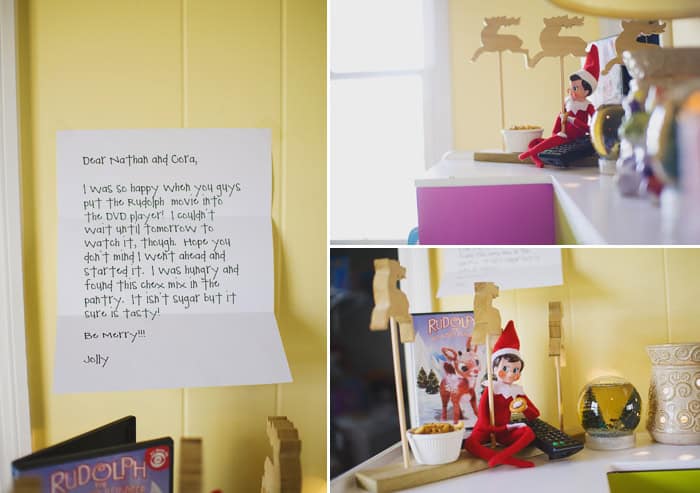 Dear Nathan and Cora,
I was so happy when you guys
put the Rudolph movie into
the DVD player! I couldn't
wait until tomorrow to
watch it, though. Hope you
don't mind I went ahead and
started it. I was hungry and
found this chex mix in the
pantry. It isn't sugar but it
sure is tasty!
Be Merry!!!
Jolly
RUDOLPH
THE
RUDOLPH